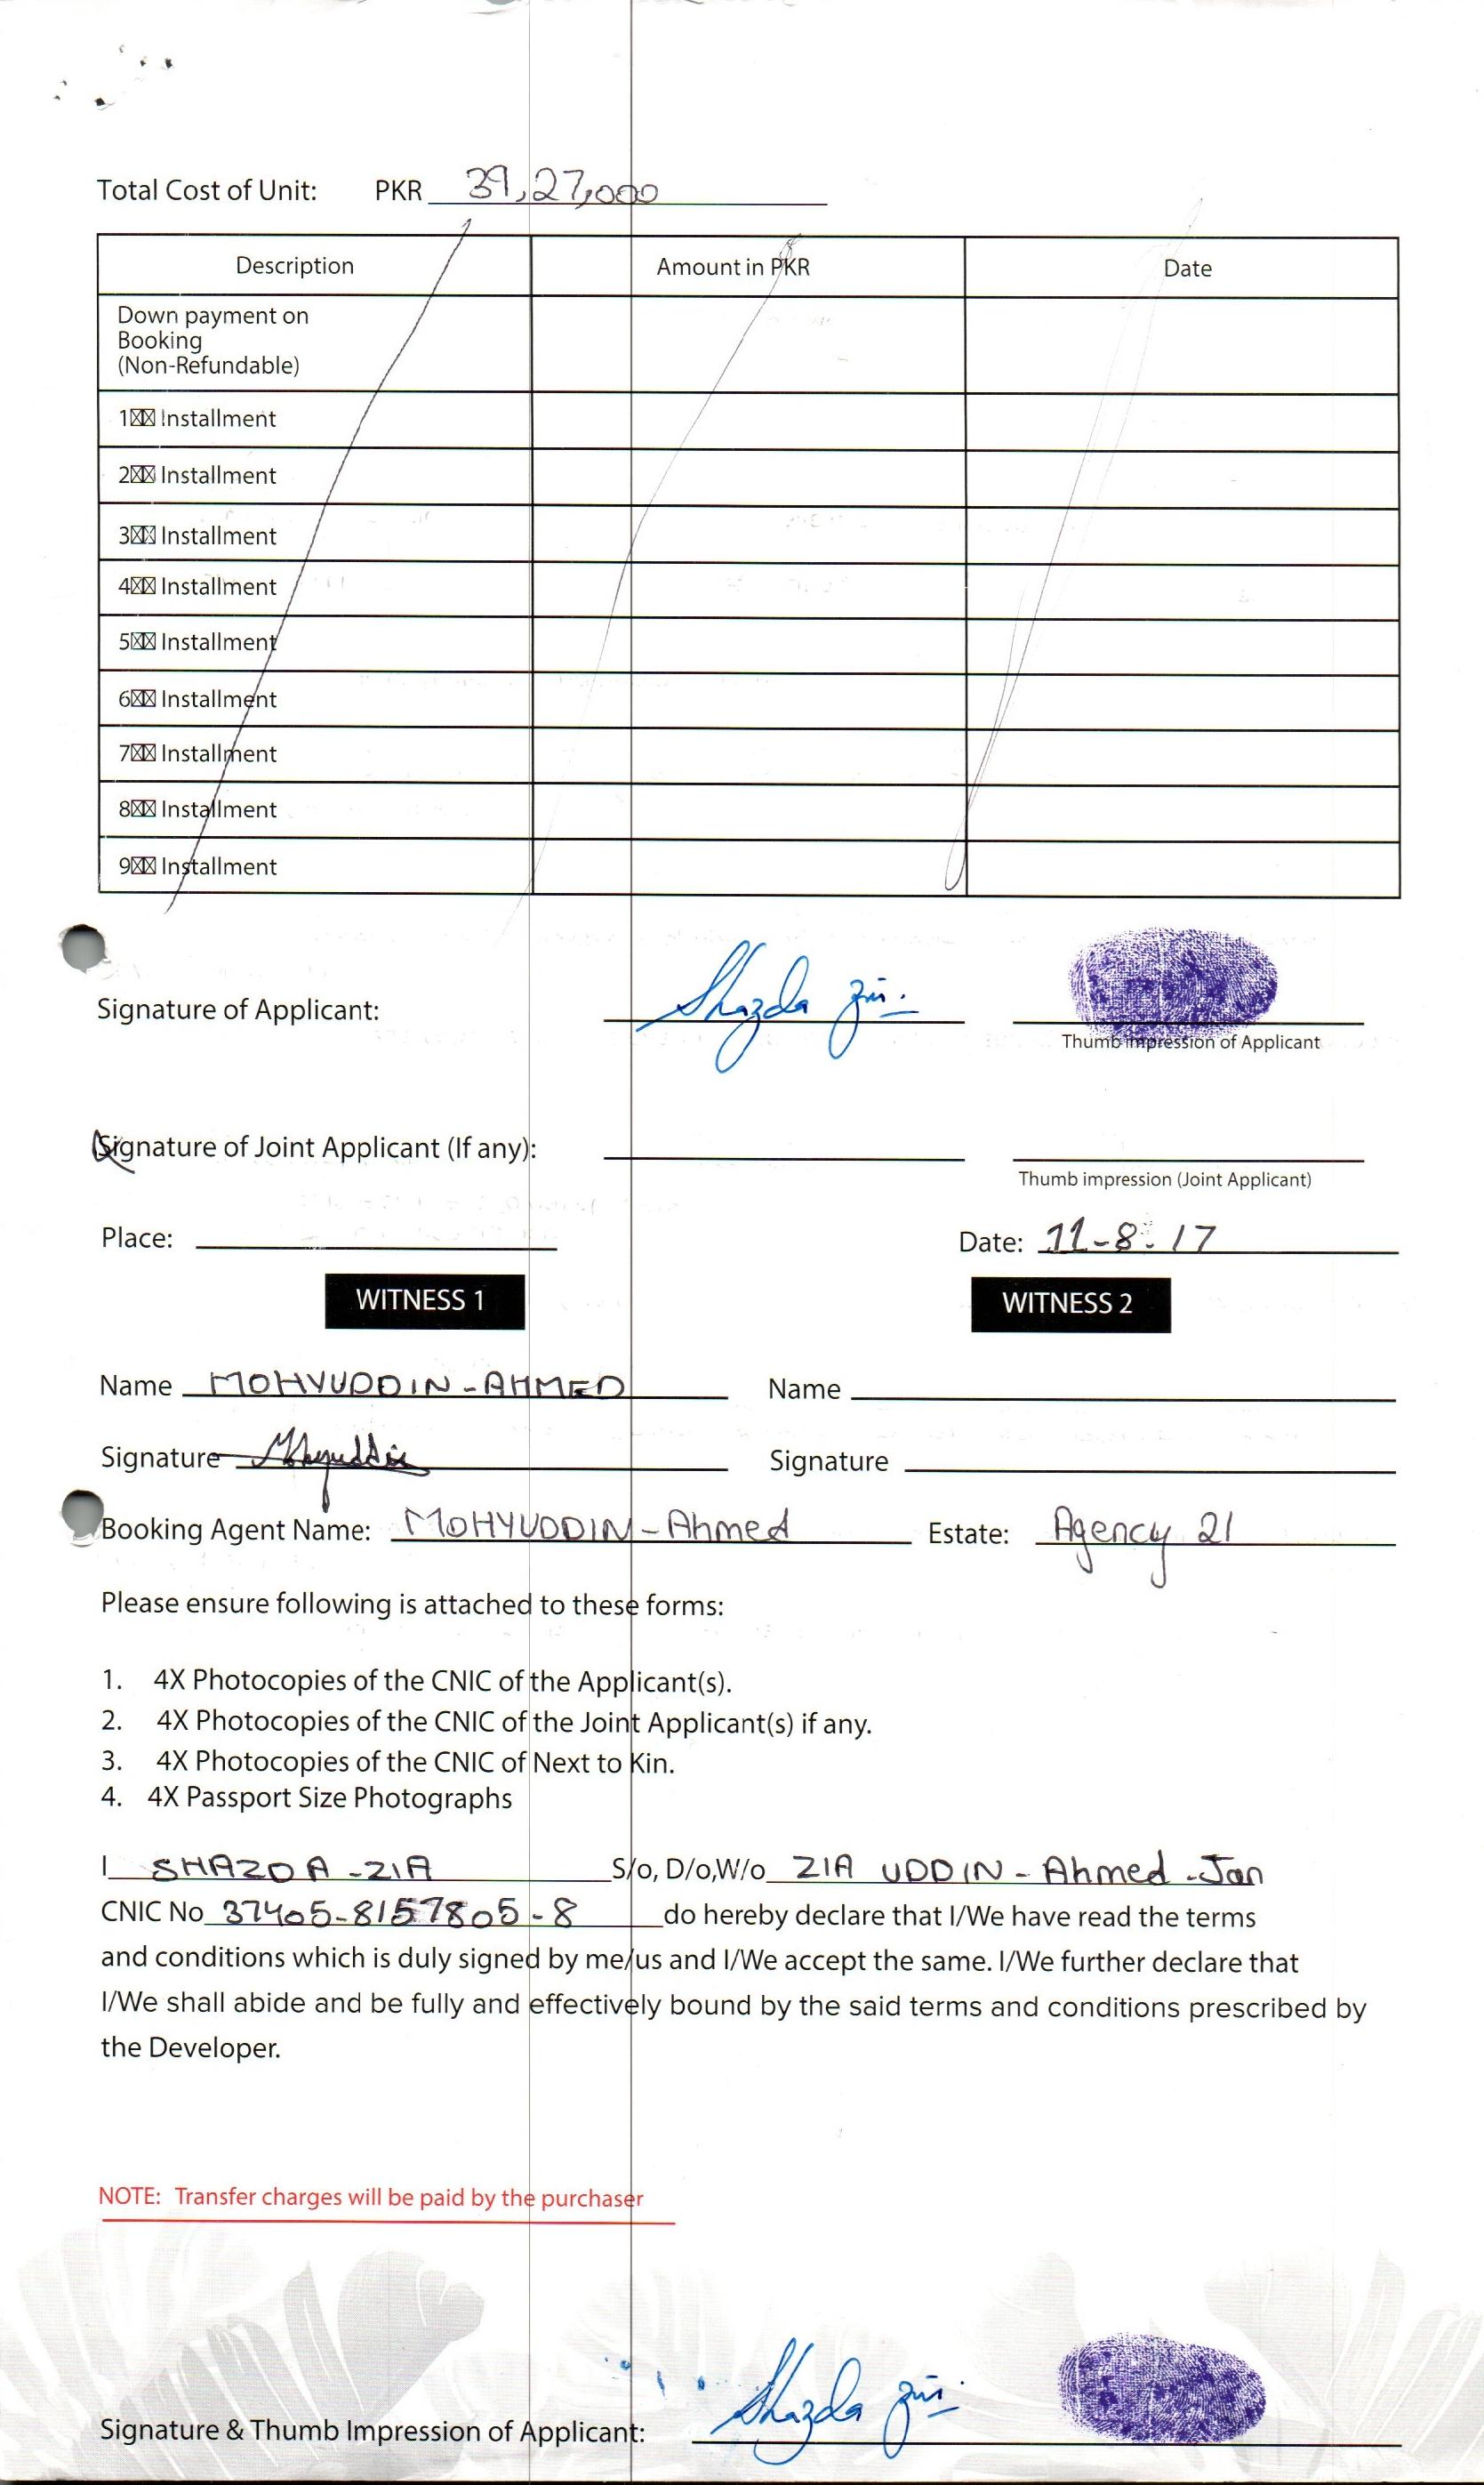 Total Cost of Unit: PKR 39,27,000
Description Amount in PKR Date
Down payment on
Booking
(Non-Refundable)
1☒☒ Installment
2☒☒ Installment
3☒☒ Installment
4☒☒ Installment
5☒☒ Installment
6☒☒ Installment
7☒☒ Installment
8☒☒ Installment
9☒☒ Installment
Signature of Applicant: Shazda Zia
Thumb impression of Applicant
Signature of Joint Applicant (If any):
Thumb impression (Joint Applicant)
Place: Date: 11-8-17
WITNESS 1 WITNESS 2
Name MOHYUDDIN-AHMED Name
Signature Mohyuddin Signature
Booking Agent Name: MOHYUDDIN-Ahmed Estate: Agency 21
Please ensure following is attached to these forms:
1. 4X Photocopies of the CNIC of the Applicant(s).
2. 4X Photocopies of the CNIC of the Joint Applicant(s) if any.
3. 4X Photocopies of the CNIC of Next to Kin.
4. 4X Passport Size Photographs
I SHAZDA-ZIA S/o, D/o,W/o ZIA UDDIN-Ahmed-Jan
CNIC No 37405-8157805-8 do hereby declare that I/We have read the terms
and conditions which is duly signed by me/us and I/We accept the same. I/We further declare that
I/We shall abide and be fully and effectively bound by the said terms and conditions prescribed by
the Developer.
NOTE: Transfer charges will be paid by the purchaser
Signature & Thumb Impression of Applicant: Shazda Zia